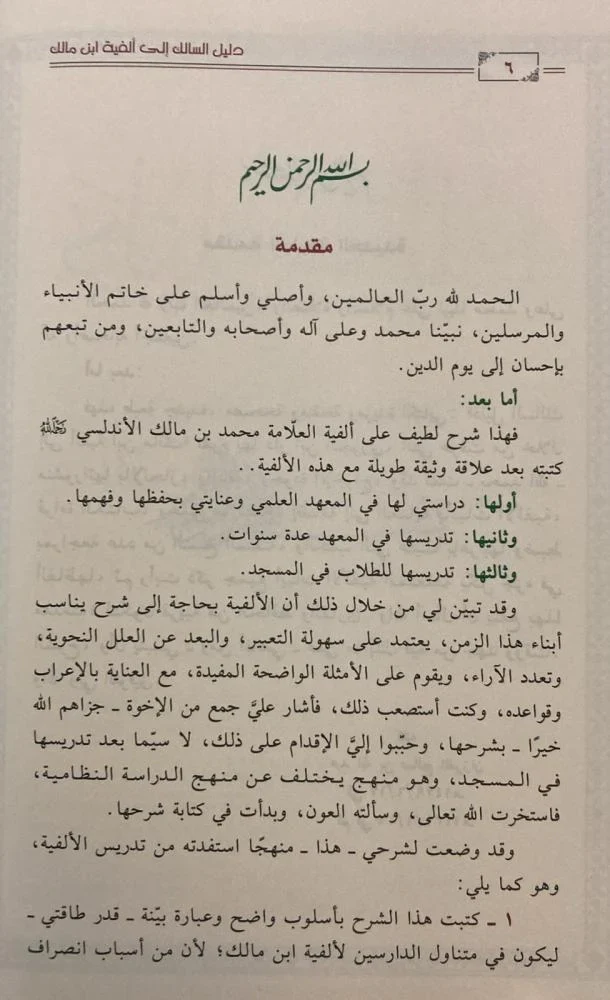 دليل السالك إلى ألفية ابن مالك
٦
بسم الله الرحمن الرحيم
مقدمة
الحمد لله ربّ العالمين، وأصلي وأسلم على خاتم الأنبياء
والمرسلين، نبيّنا محمد وعلى آله وأصحابه والتابعين، ومن تبعهم
بإحسان إلى يوم الدين.
أما بعد:
فهذا شرح لطيف على ألفية العلّامة محمد بن مالك الأندلسي رحمه الله
كتبته بعد علاقة وثيقة طويلة مع هذه الألفية..
أولها: دراستي لها في المعهد العلمي وعنايتي بحفظها وفهمها.
وثانيها: تدريسها في المعهد عدة سنوات.
وثالثها: تدريسها للطلاب في المسجد.
وقد تبيّن لي من خلال ذلك أن الألفية بحاجة إلى شرح يناسب
أبناء هذا الزمن، يعتمد على سهولة التعبير، والبعد عن العلل النحوية،
وتعدد الآراء، ويقوم على الأمثلة الواضحة المفيدة، مع العناية بالإعراب
وقواعده، وكنت أستصعب ذلك، فأشار عليَّ جمع من الإخوة ـ جزاهم الله
خيرًا ـ بشرحها، وحبّبوا إليَّ الإقدام على ذلك، لا سيّما بعد تدريسها
في المسجد، وهو منهج يختلف عن منهج الدراسة النظامية،
فاستخرت الله تعالى، وسألته العون، وبدأت في كتابة شرحها.
وقد وضعت لشرحي ـ هذا ـ منهجًا استفدته من تدريس الألفية،
وهو كما يلي:
١ ـ كتبت هذا الشرح بأسلوب واضح وعبارة بيّنة ـ قدر طاقتي ـ
ليكون في متناول الدارسين لألفية ابن مالك؛ لأن من أسباب انصراف